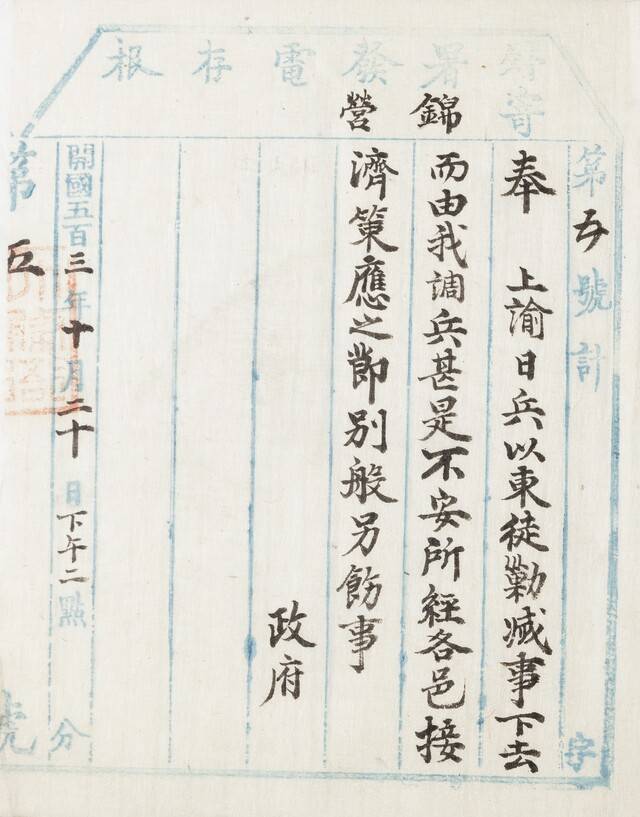 寄署發電存根
第五號計 字
錦營
奉 上諭日兵以東徒勦滅事下去
而由我調兵甚是不安所經各邑接
濟策應之節別般另飭事
政府
開國五百三年十月二十日下午二點 分
第五 號